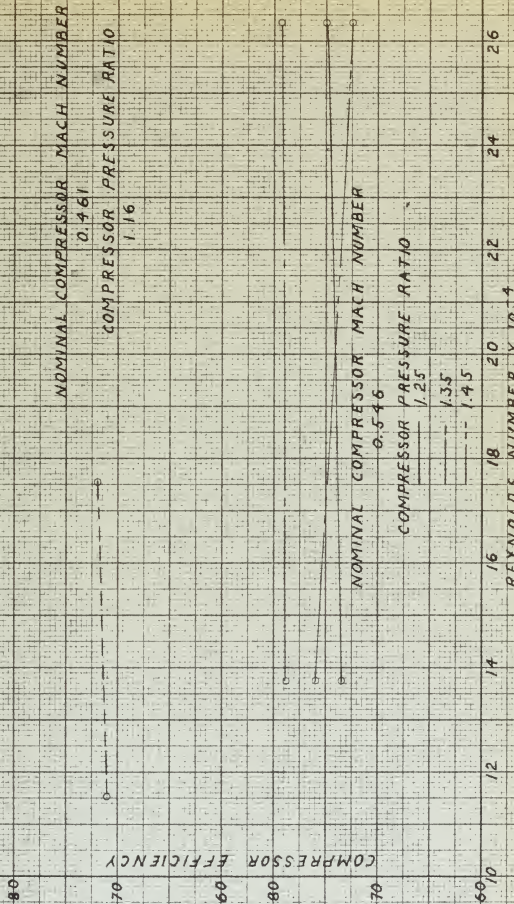 NOMINAL COMPRESSOR MACH NUMBER
0.461
COMPRESSOR PRESSURE RATIO
1.16
NOMINAL COMPRESSOR MACH NUMBER
0.546
COMPRESSOR PRESSURE RATIO
1.25
1.35
1.45
COMPRESSOR EFFICIENCY
80
70
80
70
60
10 12 14 16 18 20 22 24 26
REYNOLDS NUMBER X 10-4